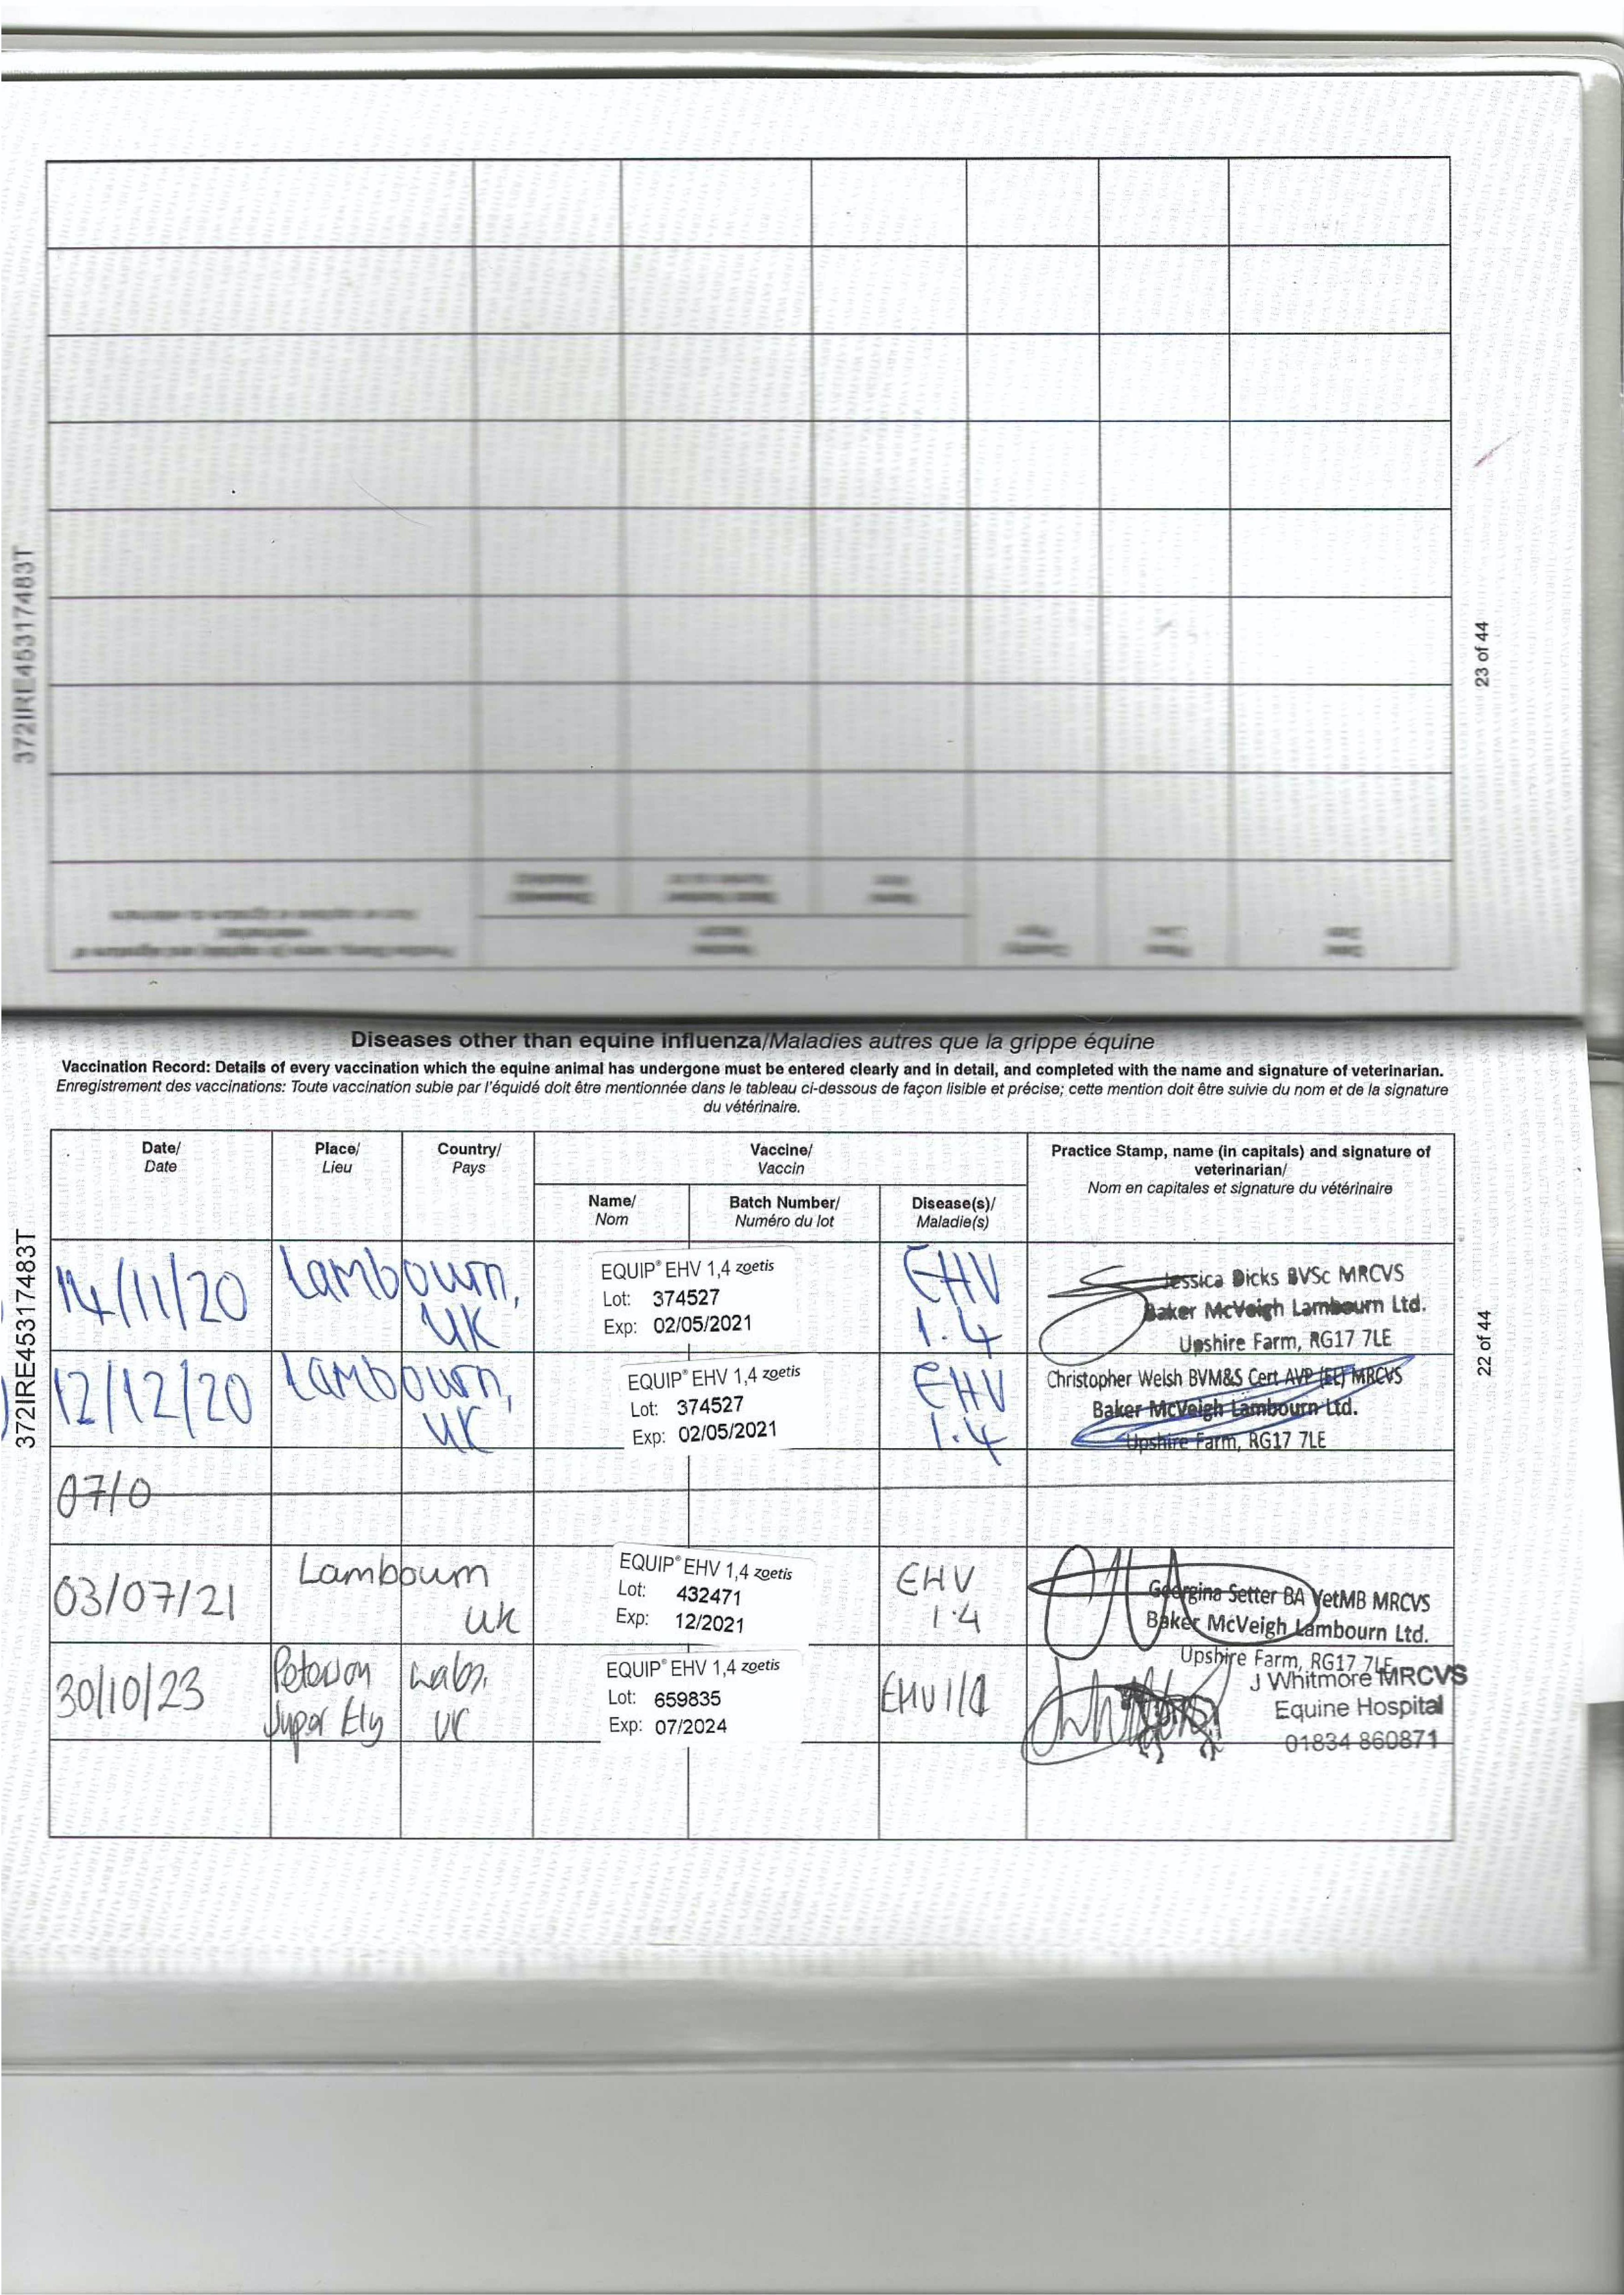 372IRE45317483T
23 of 44
Diseases other than equine influenza/Maladies autres que la grippe équine
Vaccination Record: Details of every vaccination which the equine animal has undergone must be entered clearly and in detail, and completed with the name and signature of veterinarian.
Enregistrement des vaccinations: Toute vaccination subie par l'équidé doit être mentionnée dans le tableau ci-dessous de façon lisible et précise; cette mention doit être suivie du nom et de la signature
du vétérinaire.
Date/ Place/ Country/ Vaccine/ Practice Stamp, name (in capitals) and signature of
Date Lieu Pays Vaccin veterinarian/
Nom en capitales et signature du vétérinaire
Name/ Batch Number/ Disease(s)/
Nom Numéro du lot Maladie(s)
372IRE45317483T
22 of 44
14/11/20 Lambourn, UK
EQUIP® EHV 1,4 zoetis
Lot: 374527
Exp: 02/05/2021
EHV
1.4
Jessica Dicks BVSc MRCVS
Baker McVeigh Lambourn Ltd.
Upshire Farm, RG17 7LE
12/12/20 Lambourn, UK
EQUIP® EHV 1,4 zoetis
Lot: 374527
Exp: 02/05/2021
EHV
1.4
Christopher Welsh BVM&S Cert AVP (EL) MRCVS
Baker McVeigh Lambourn Ltd.
Upshire Farm, RG17 7LE
07/0
03/07/21 Lambourn UK
EQUIP® EHV 1,4 zoetis
Lot: 432471
Exp: 12/2021
EHV
1.4
Georgina Setter BA VetMB MRCVS
Baker McVeigh Lambourn Ltd.
Upshire Farm, RG17 7LE
30/10/23
Ely UK
EQUIP® EHV 1,4 zoetis
Lot: 659835
Exp: 07/2024
EHV 1/4
J Whitmore MRCVS
Equine Hospital
01834 860871